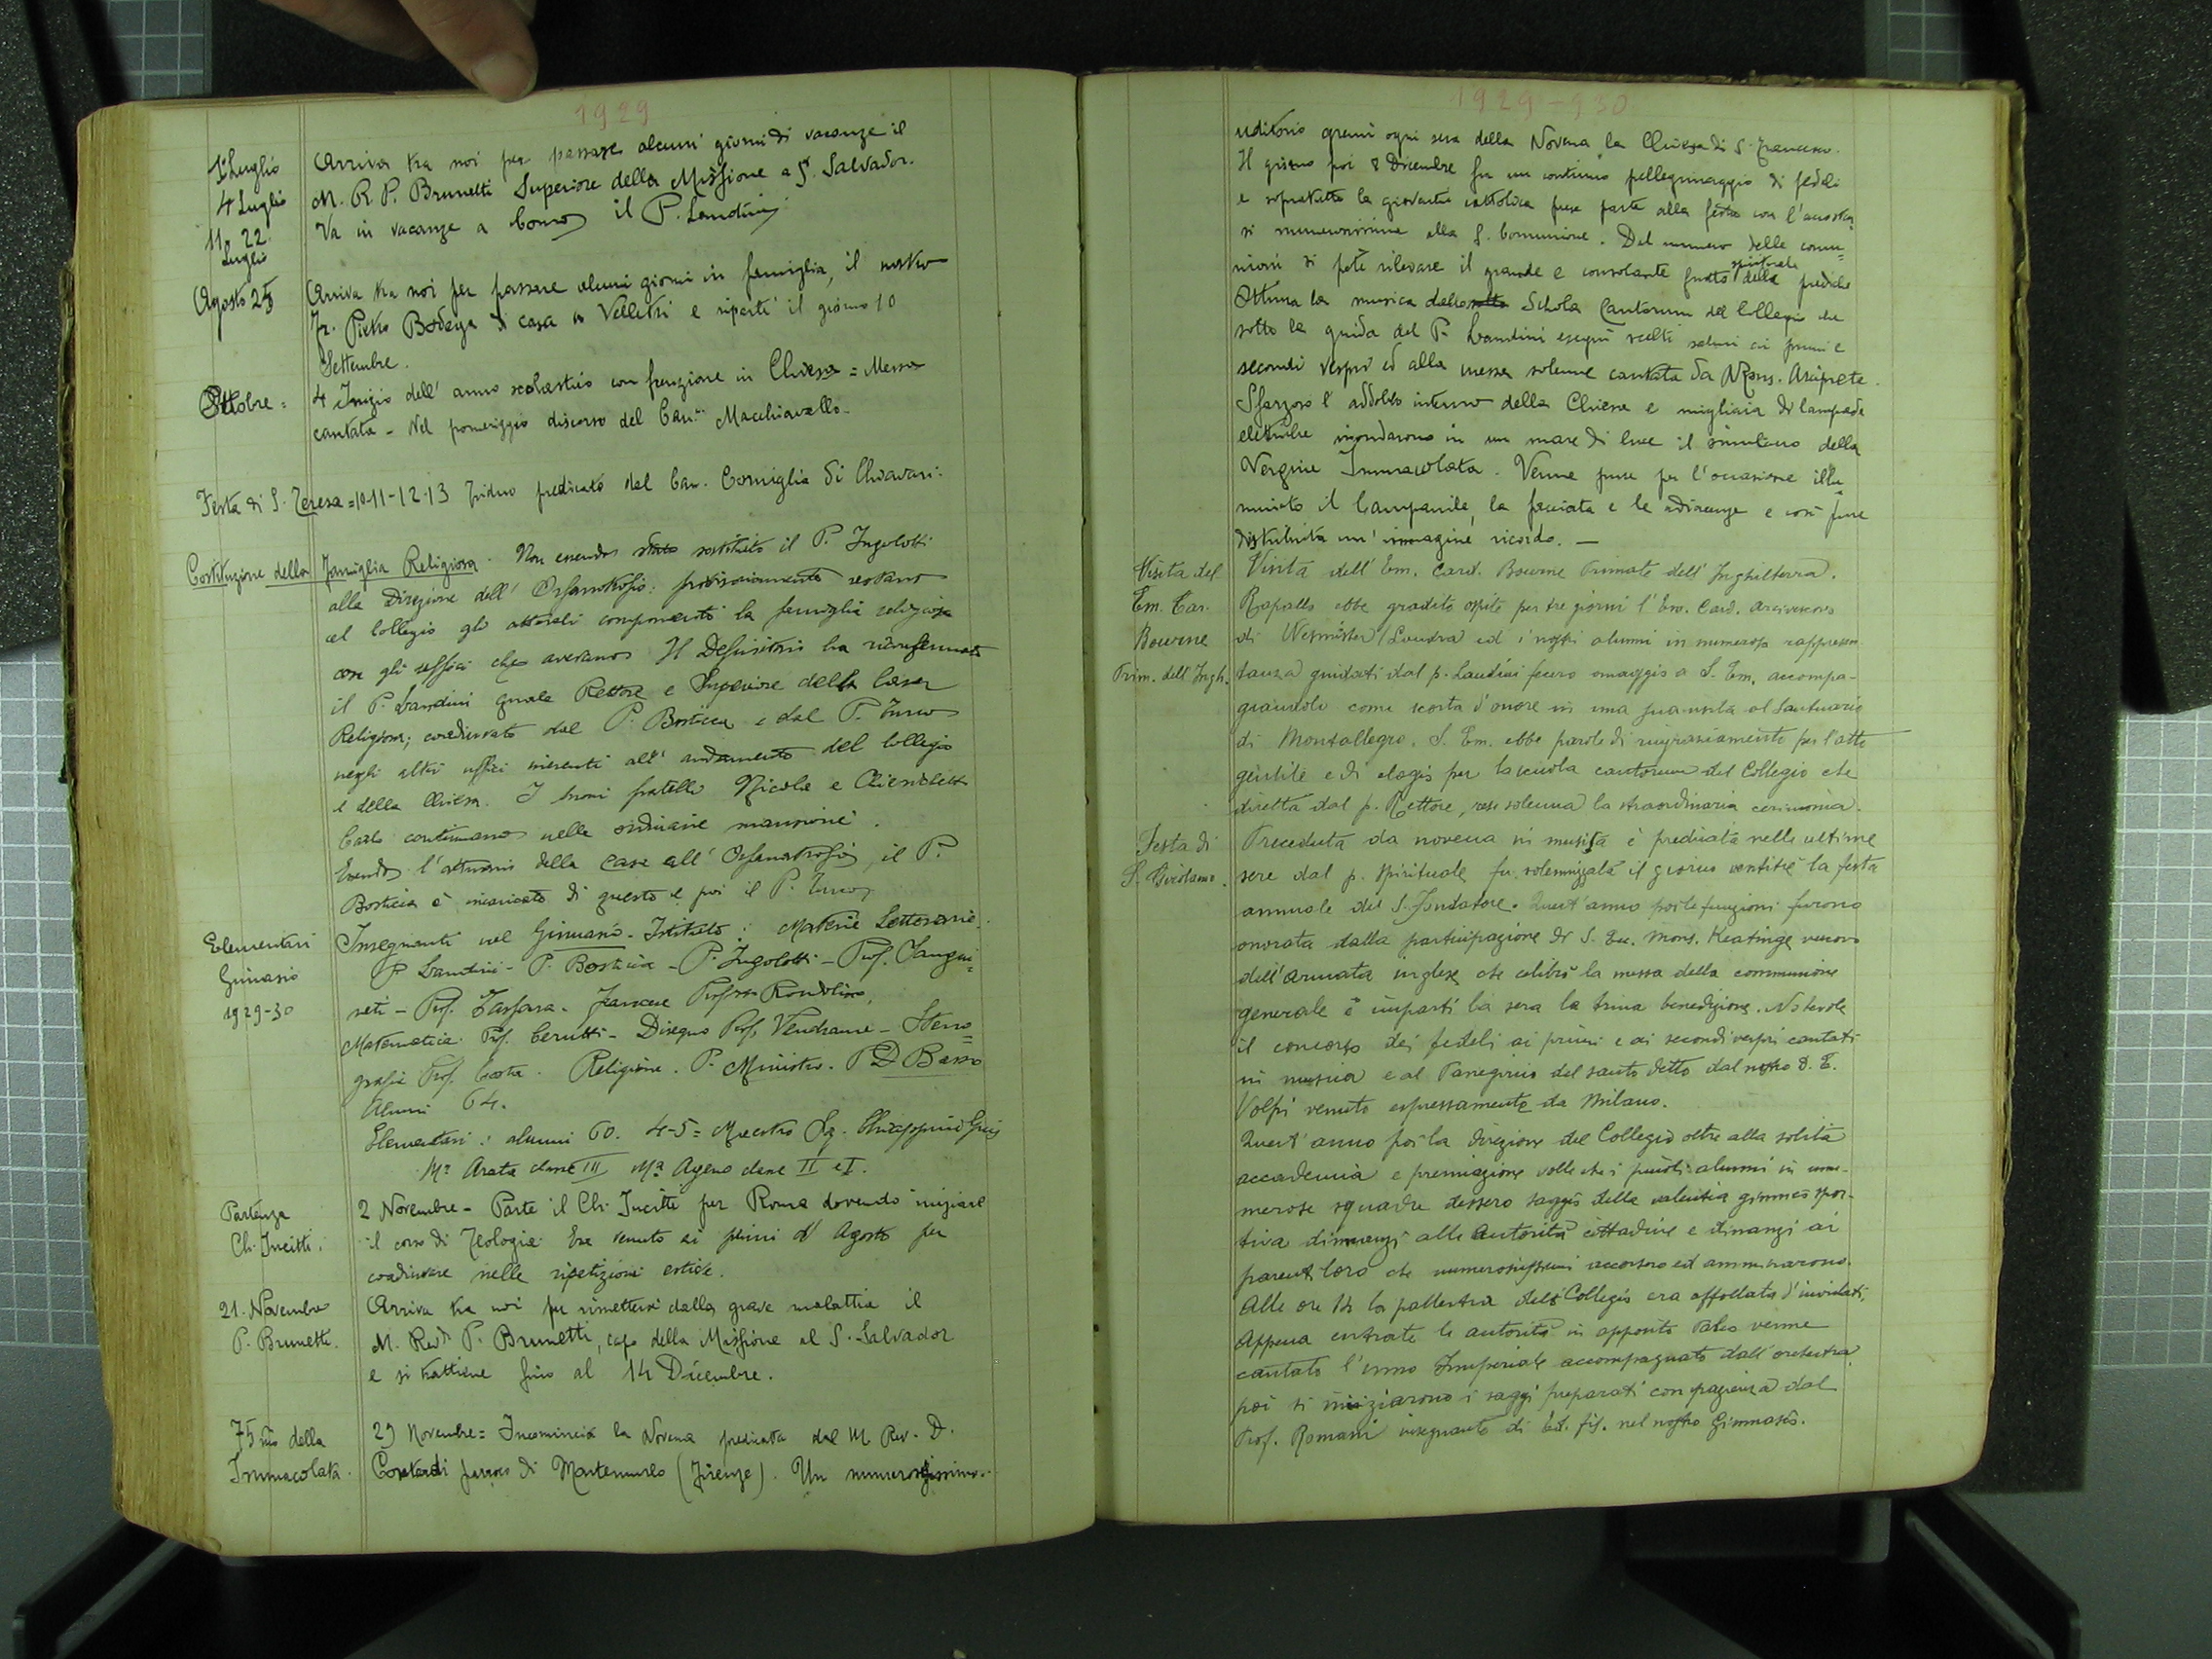 1929
1 Luglio
4 Luglio
Arriva tra noi per passare alcuni giorni di vacanze il
M. R. P. Brunetti Superiore della Missione a S. Salvador.
11 a 22 Luglio
Va in vacanze a Como il P. Landini
Agosto 25
Arriva tra noi per passare alcuni giorni in famiglia, il nostro
Fr. Pietro Bodega di casa a Velletri e ripartì il giorno 10
Settembre.
Ottobre =
4 Inizio dell' anno scolastico con funzione in Chiesa = Messa
cantata - Nel pomeriggio discorso del Can. Macchiavello.
Festa di S. Teresa = 10-11-12-13 Triduo predicato dal Can. Corniglia di Chiavari.
Costituzione della Famiglia Religiosa. Non essendo stato sostituito il P. Ingolotti
alla direzione dell' Orfanotrofio: provvisoriamente restano
al Collegio gli attuali componenti la famiglia religiosa
con gli uffici che avevano. Il Definitorio ha riconfermato
il P. Landini quale Rettore e Superiore della Casa
Religiosa; coadiuvato dal P. Bortica e dal P. Turco
negli altri uffici inerenti all' andamento del Collegio
e della Chiesa. I buoni fratelli Nicola e
Carlo continuano nelle ordinarie mansioni.
Essendo l'attuario della Casa all' Orfanotrofio, il P.
Bortica è incaricato di questo e poi il P. Turco
Elementari
Ginnasio
1929-30
Insegnanti nel Ginnasio - Istituto: Materie Letterarie.
P. Landini - P. Bortica - P. Ingolotti - Prof. Sangui=
neti - Prof. - Francese Prof.ssa Rondolino,
Matematica Prof. Cerutti - Disegno Prof. Vendrame - Steno=
grafia Prof. Costa. Religione. P. Ministro. P D Basso
Alunni 64.
Elementari: alunni 60. 4-5 = Maestro Sig. Chiappini
Ma Arata classe III Ma Ageno classe II e I.
Partenza
Ch. Incitti.
2 Novembre - Parte il Ch. Incitti per Roma dovendo iniziare
il corso di Teologia. Era venuto ai primi d' Agosto per
coadiuvare nelle ripetizioni estive.
21. Novembre
P. Brunetti.
Arriva tra noi per rimettersi dalla grave malattia il
M. Rev. P. Brunetti, capo della Missione al S. Salvador
e si trattiene fino al 14 Dicembre.
75mo della
Immacolata.
29 Novembre = Incomincia la Novena predicata dal M. Rev. D.
Contardi parroco di Montemurlo (Firenze). Un numerosissimo
1929-930
uditorio gremì ogni sera della Novena la Chiesa di S. Francesco.
Il giorno poi 8 Dicembre fu un continuo pellegrinaggio di fedeli
e sopratutto la gioventù cattolica prese parte alla festa con l'accostar=
si numerosissima alla S. Comunione. Dal numero delle comu=
nioni si potè rilevare il grande e consolante frutto spirituale della predica
Ottima la musica della Schola Cantorum del Collegio che
sotto la guida del P. Landini eseguì scelti salmi ai primi e
secondi vespri ed alla messa solenne cantata da Mons. Arciprete.
Sfarzoso l' addobbo interno della Chiesa e migliaia di lampade
elettriche inondarono in un mare di luce il simulacro della
Vergine Immacolata. Venne pure per l'occasione illu=
minato il Campanile, la facciata e le adiacenze e così pure
distribuita un' immagine ricordo. —
Visita del
Em. Car.
Bourne
Prim. dell'Ingh.
Visita dell' Em. Card. Bourne Primate dell' Inghilterra.
Rapallo ebbe gradito ospite per tre giorni l' Em. Card. arcivescovo
di Wesminster (Londra) ed i nostri alunni in numerosa rappresen
tanza guidati dal p. Landini fecero omaggio a S. Em. accompa-
gnandolo come scorta d'onore in una sua visita al Santuario
di Montallegro. S. Em. ebbe parole di ringraziamento per l'atto
gentile e di elogio per la scuola cantorum del Collegio che
diretta dal p. Rettore, rese solenne la straordinaria cerimonia.
Festa di
S. Girolamo.
Preceduta da novena in musica e predicata nelle ultime
sere dal p. spirituale fu solennizzata il giorno ventitrè la festa
annuale del S. Fondatore. Quest'anno poi le funzioni furono
onorata dalla participazione di S. Ecc. Mons. Keatinge vescovo
dell'armata inglese che celibrò la messa della communione
generale e impartì la sera la trina benedizione. Notevole
il concorso dei fedeli ai primi e ai secondi vespri cantati
in musica e al Panegirico del santo detto dal nostro D. E.
Volpi venuto espressamente da Milano.
Quest'anno poi la direzione del Collegio oltre alla solita
accademia e premiazione volle che i piccoli alunni in nume-
merose squadre dessero saggio della valentia ginnico spor-
tiva dinnanzi alle autorità cittadine e dinanzi ai
parenti loro che numerosissimi accorsero ed ammirarono.
Alle ore 14 la pallestra del Collegio era affollata d'invitati.
Appena entrate le autorità in apposito Palco venne
cantato l'inno Imperiale accompagnato dall'orchestra,
poi si iniziarono i saggi preparati con pazienza dal
Prof. Romani insegnante di Ed. fis. nel nostro Ginnasio.